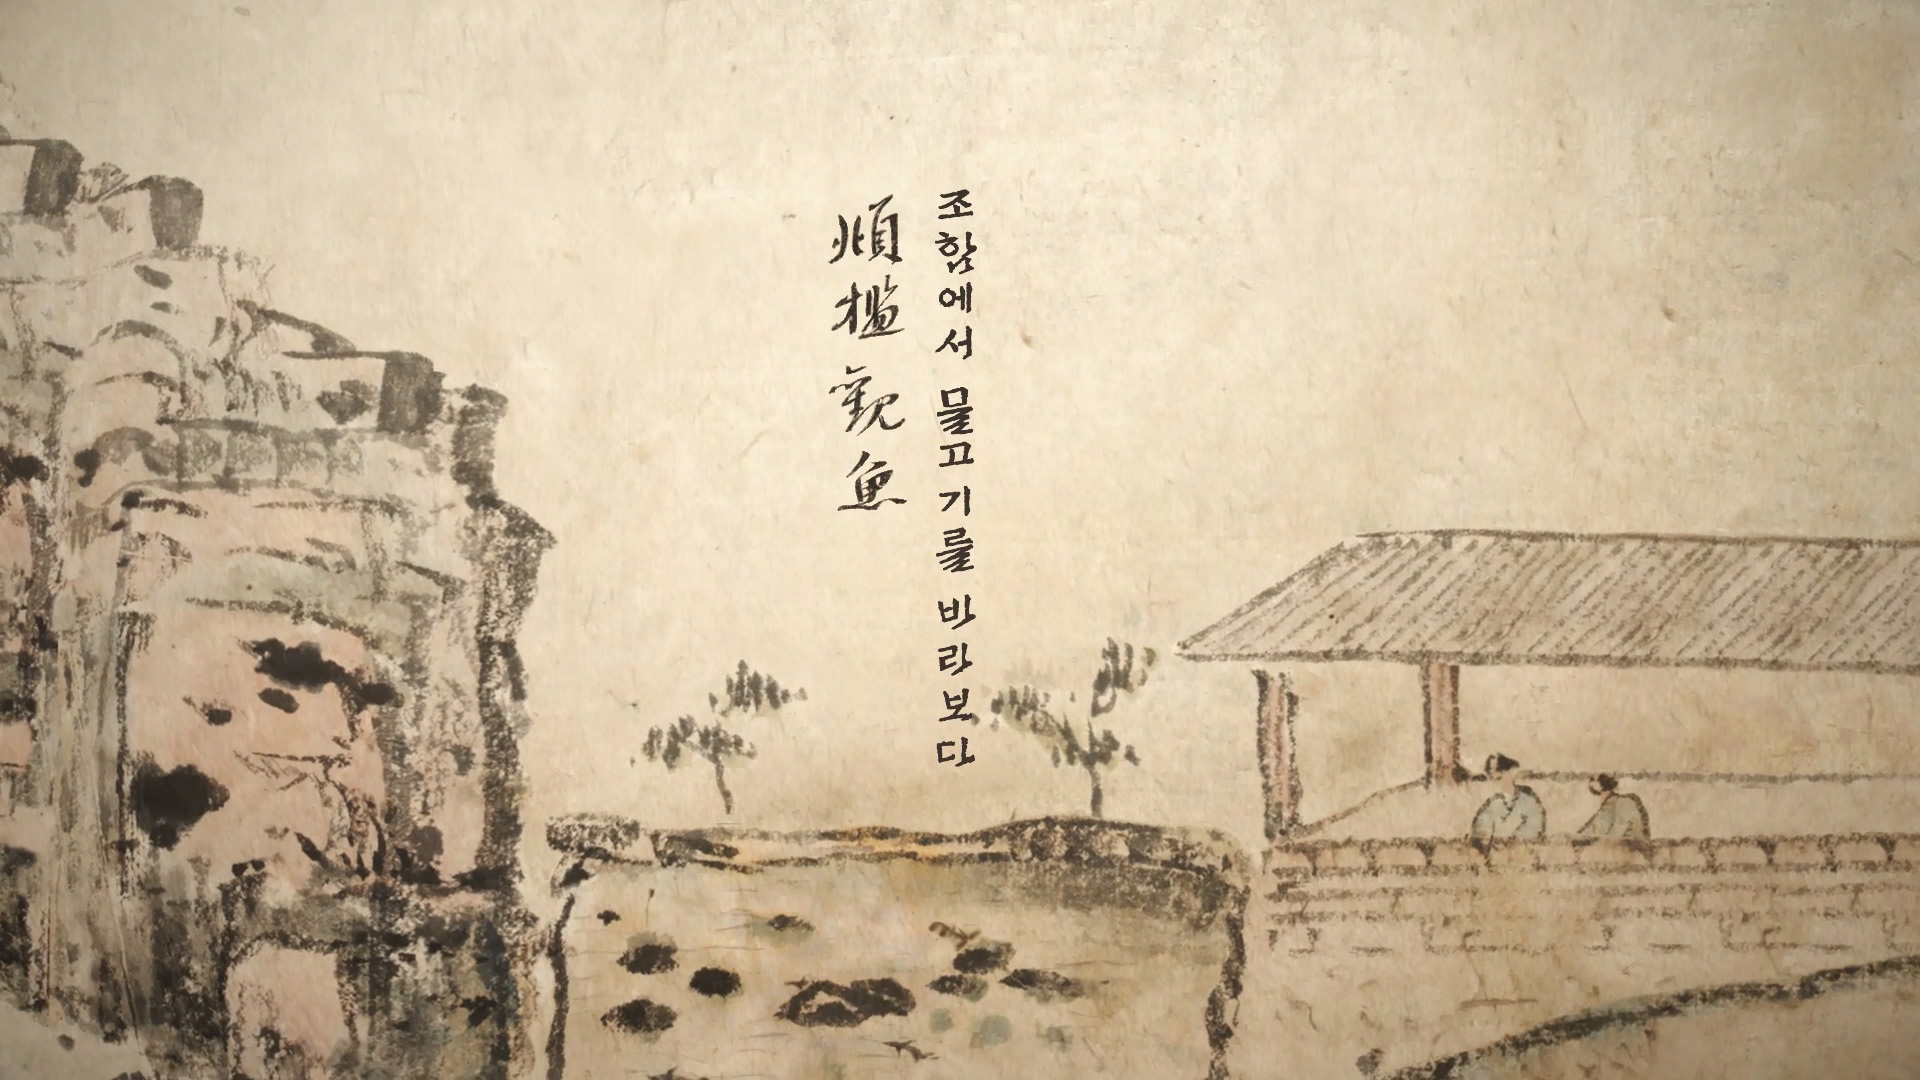 조함에서 물고기를 바라보다
頫檻觀魚